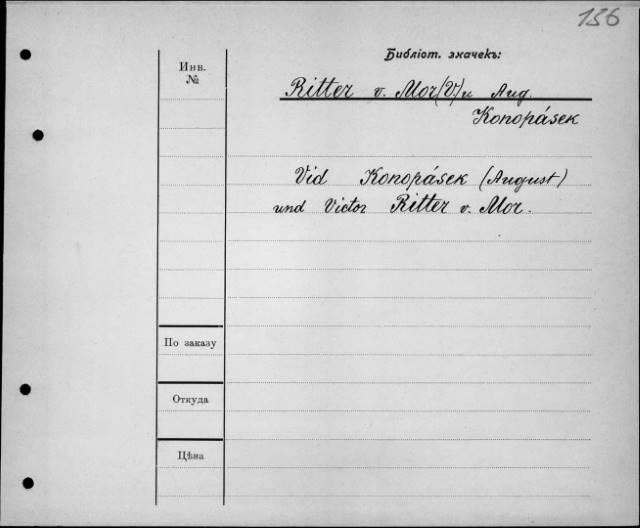 156
Библіот. значекъ:
Инв.
№
Ritter v. Mor (V.) u Aug.
Konopásek
Vid Konopásek (August)
und Victor Ritter v. Mor.
По заказу
Откуда
Цѣна